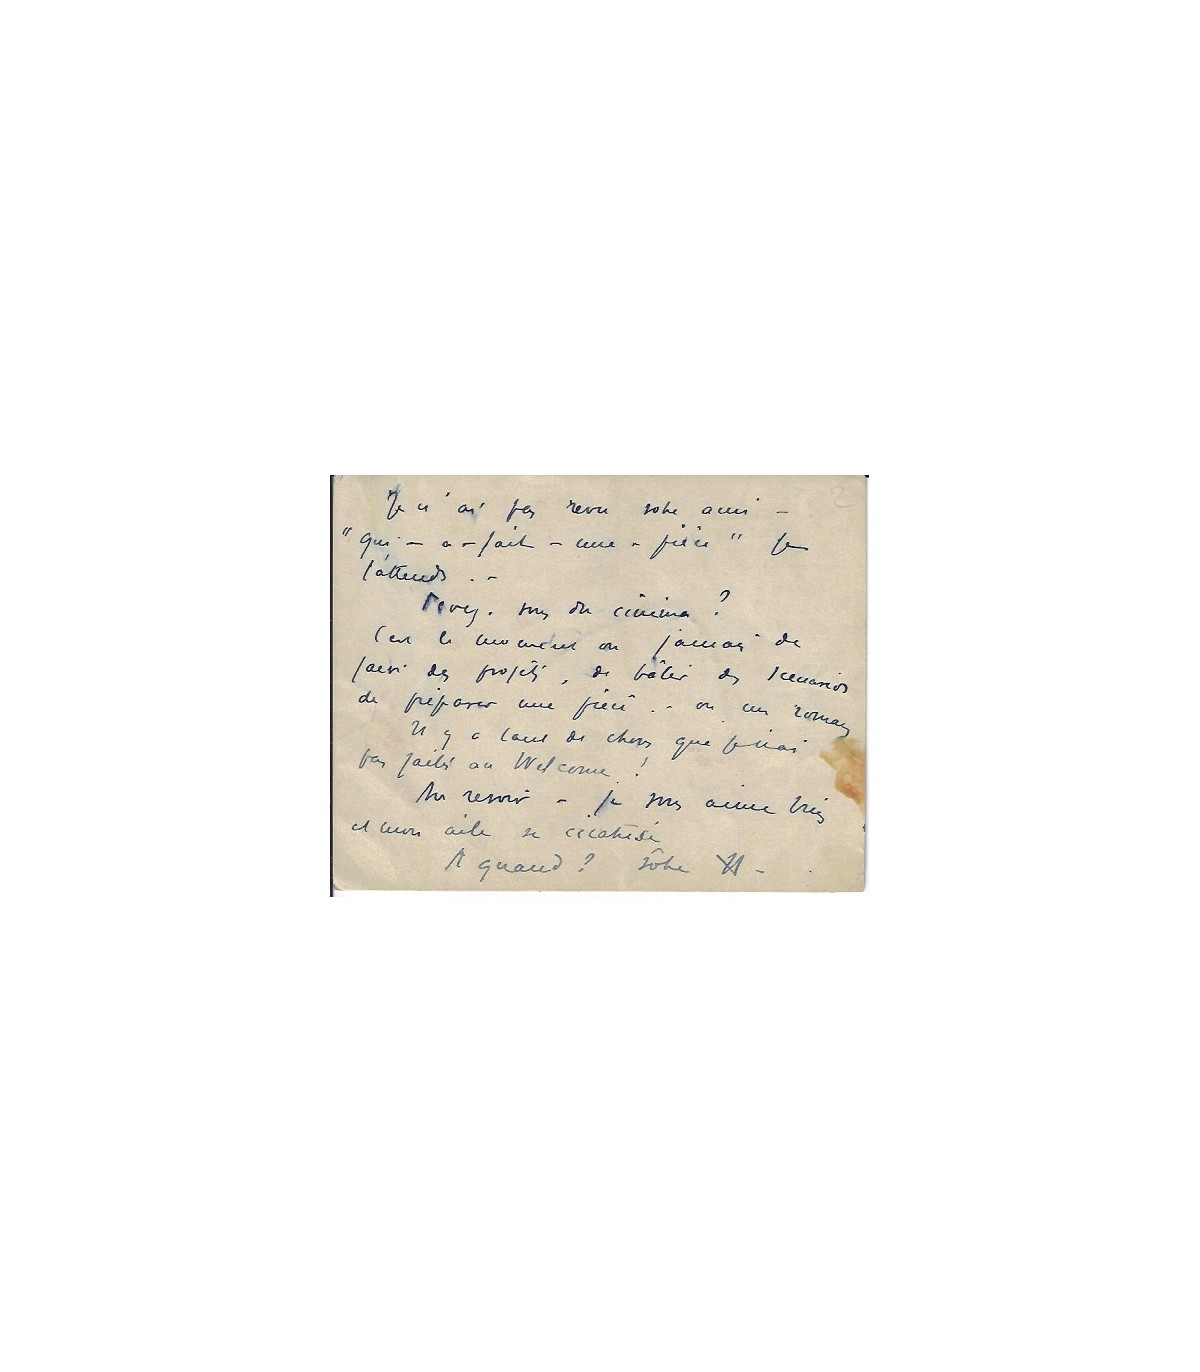 Je n'ai pas revu votre ami -
"qui - a - fait - une - pièce" Je
l'attends . -
Ferez-vous du cinéma ?
C'est le moment ou jamais de
faire des projets, de bâtir des scenarios
de préparer une pièce .. ou un roman
Il y a tant de choses que je n'ai
pas faites au Welcome !
Au revoir - je vous aime bien
et mon aile se cicatrise
A quand ? Votre
2